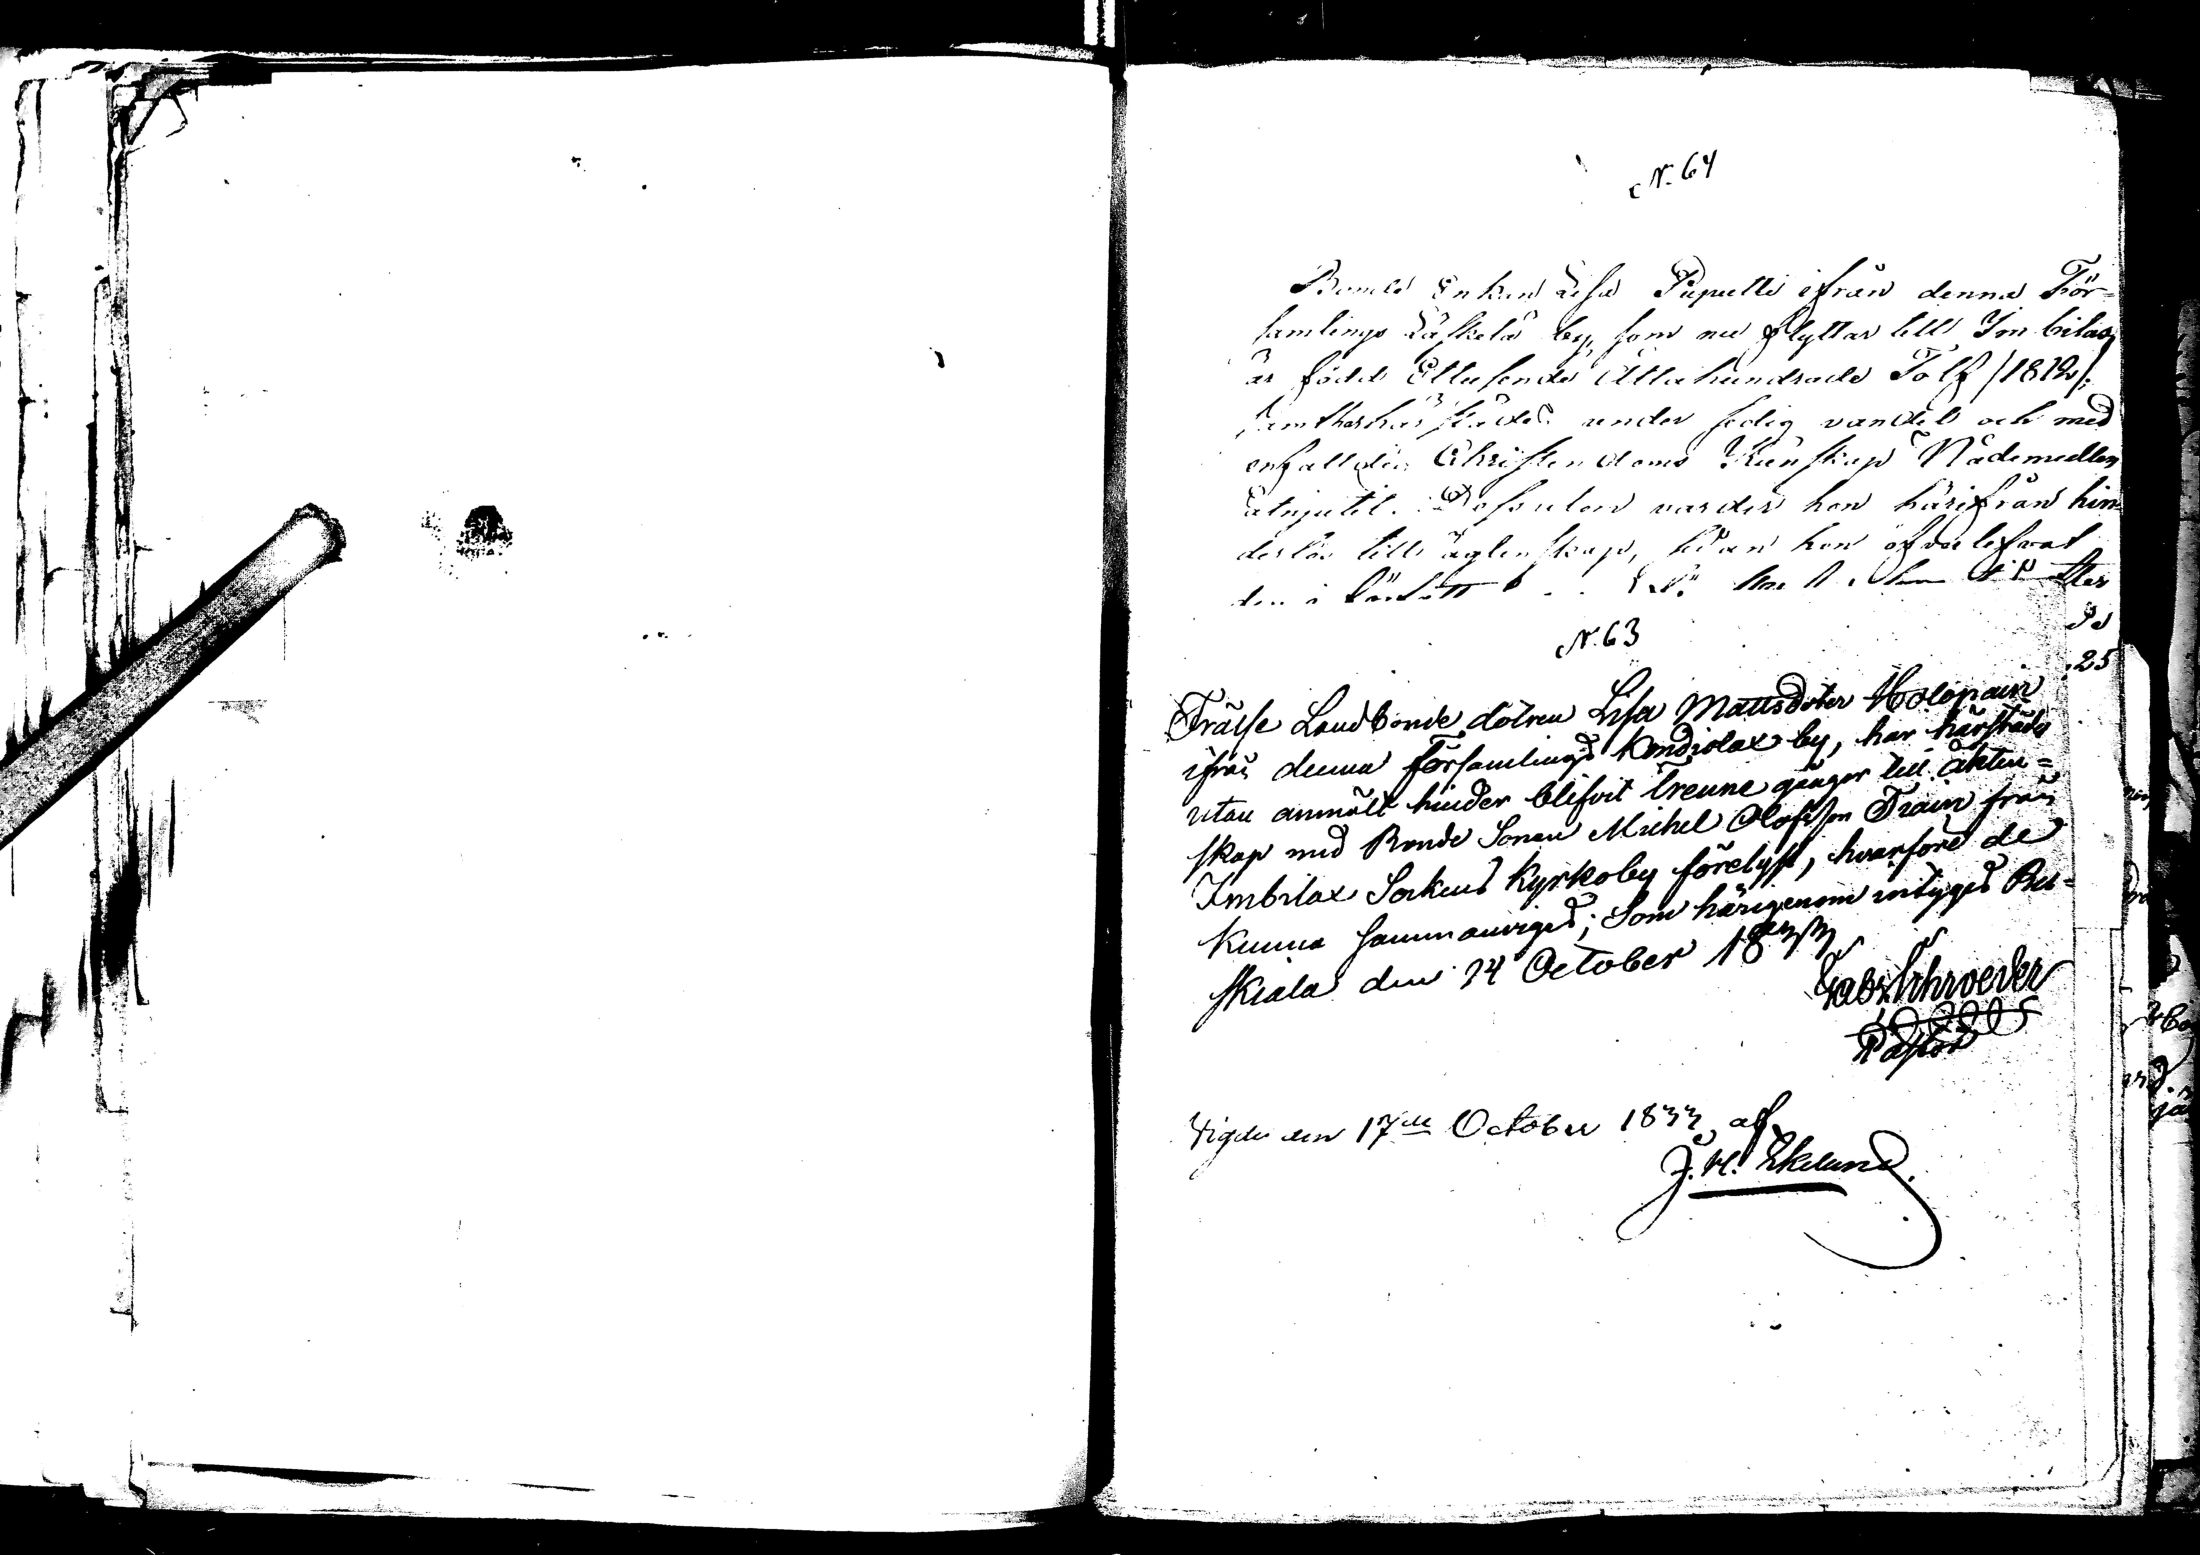 N. 64
Bonde Enkan Lisa Puputti ifrån denna För-
samlings Läskelä by, som nu flyttar till Imbilax,
är född Ettusende Åttahundrade Tolf /1812/;
samt har härstädes under sedig vandel och med
enfalldig Christendoms Kunskap Nådemedlen
åtnjutit. Dessutom varder hon härifrån hin-
derlös till ägtenskap, sedan hon öfverlefvat
den i
N. 63
25
Frälse Landbonde dotren Lisa Mattsdoter Holopain
ifrån denna församlings Kondiolax by, har härstädes
utan anmält hinder blifvit trenne gånger till äkten=
skap med Bonde Sonen Michel Olofsson Train från
Imbilax Sockens Kyrkoby förelyst, hvarföre de
kunna sammanviges; Som härigenom intygas Rus=
kiala den 14 October 1833
Gabr. Schroeder
Pastor
Vigde den 17de October 1833, af
J. H. Ekelund.